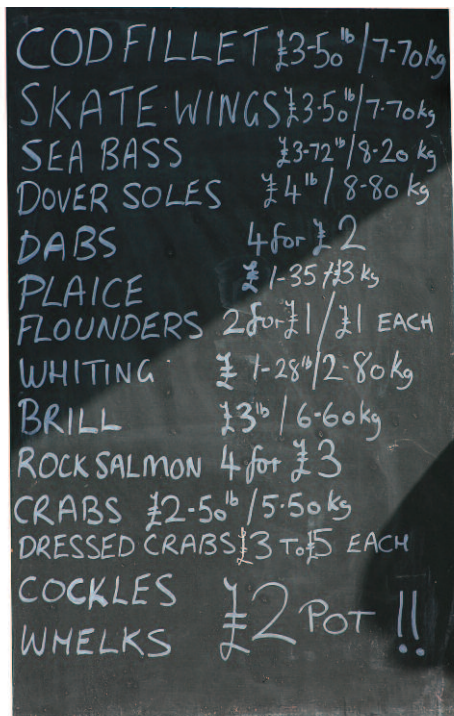 COD FILLET £3-50 lb/7-70kg
SKATE WINGS £3-50 lb/7-70kg
SEA BASS £3-72 lb/8-20 kg
DOVER SOLES £4 lb/8-80 kg
DABS 4 for £2
PLAICE £1-35/£3 kg
FLOUNDERS 2 for £1/£1 EACH
WHITING £1-28 lb/2-80kg
BRILL £3 lb/6-60kg
ROCK SALMON 4 for £3
CRABS £2-50 lb/5-50 kg
DRESSED CRABS £3 TO £5 EACH
COCKLES
WHELKS £2 POT !!